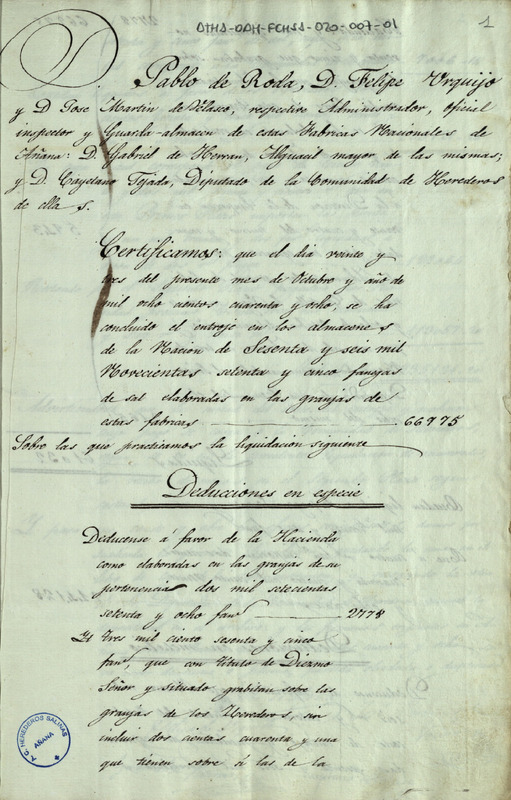 ATHA-DAH-FCHSS-020-007-01
1
D. Pablo de Roda, D. Felipe Urquijo
y D Jose Martin de Velasco, respectivo Administrador, oficial
inspector y Guarda-almacen de estas Fabricas Nacionales de
Añana: D. Gabriel de Herran, Alguacil mayor de las mismas;
y D. Cayetano Tejada, Diputado de la Comunidad de Herederos
de ellas.
Certificamos: que el dia veinte y
tres del presente mes de Octubre y año de
mil ocho cientos cuarenta y ocho, se ha
concluido el entroje en los almacenes
de la Nacion de Sesenta y seis mil
Novecientas setenta y cinco fanegas
de sal elaboradas en las granjas de
estas fabricas 66975
Sobre las que practicamos la liquidacion siguiente
Deducciones en especie
Deducense á favor de la Hacienda
como elaboradas en las granjas de su
pertenencia dos mil setecientas
setenta y ocho fans 2778
Yt tres mil ciento sesenta y cinco
fans, que con titulo de Diezmo
Señor y situado grabitan sobre las
granjas de los Herederos, sin
incluir dos cientas cuarenta y una
que tienen sobre si las de la
A.C. HEREDEROS SALINAS
AÑANA